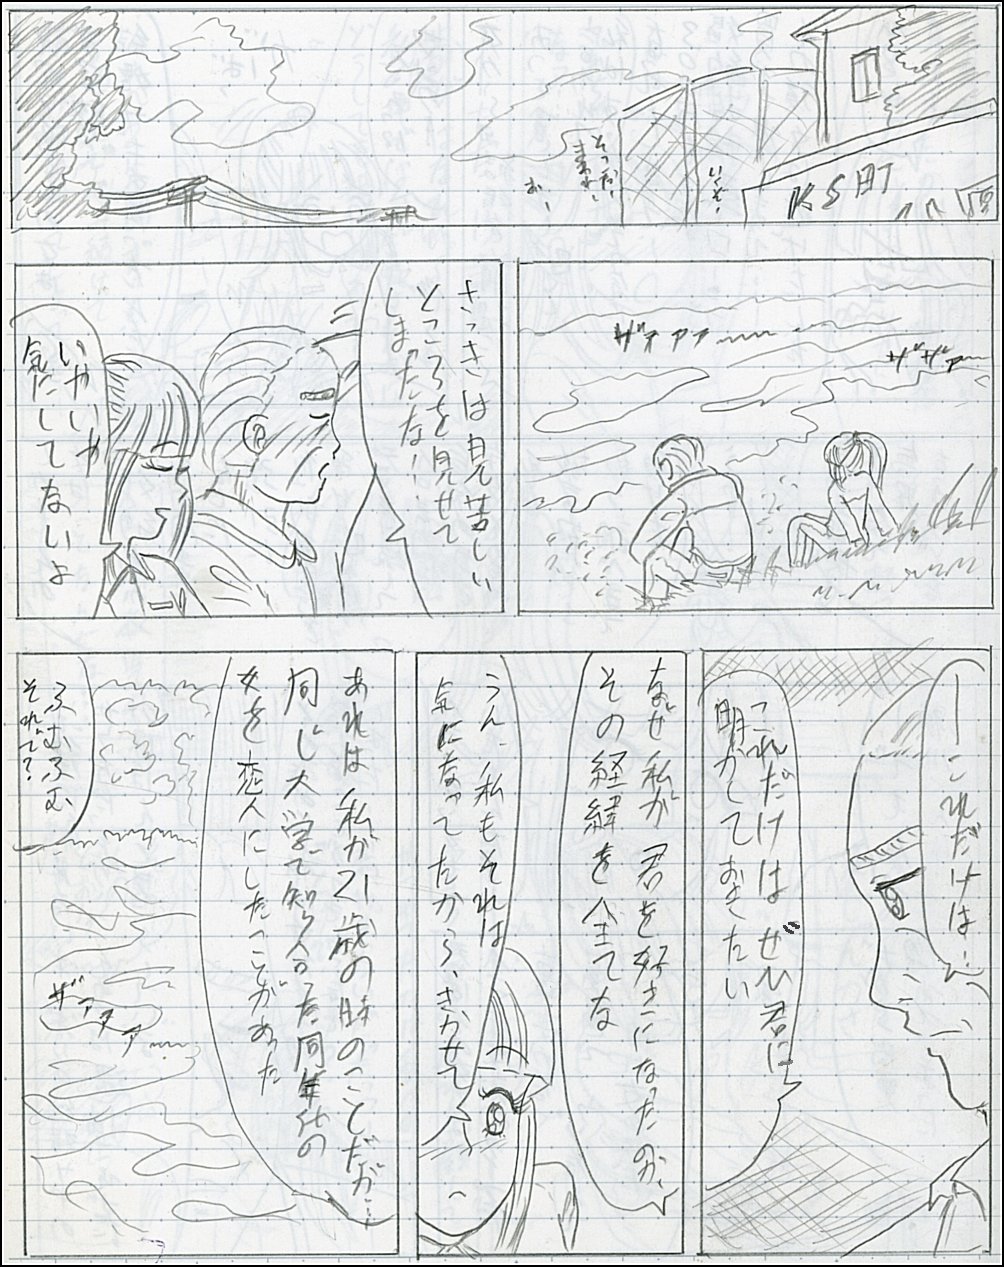 KSHT
いくぞー
そっちー
まわれー
おー
ザァァァ
ザザァ
さっきは見苦しい
ところを見せて
しまったな…
いやいや
気にしてないよ
これだけは…
これだけはぜひ君に
明かしておきたい
なぜ私が君を好きになったのか、
その経緯を全てな
うん、私もそれは
気になってたから、きかせて
あれは私が21歳の時のことだが…
同じ大学で知り合った同年代の
女を恋人にしたことがあった
ふむふむ
それで?
ザァァァ